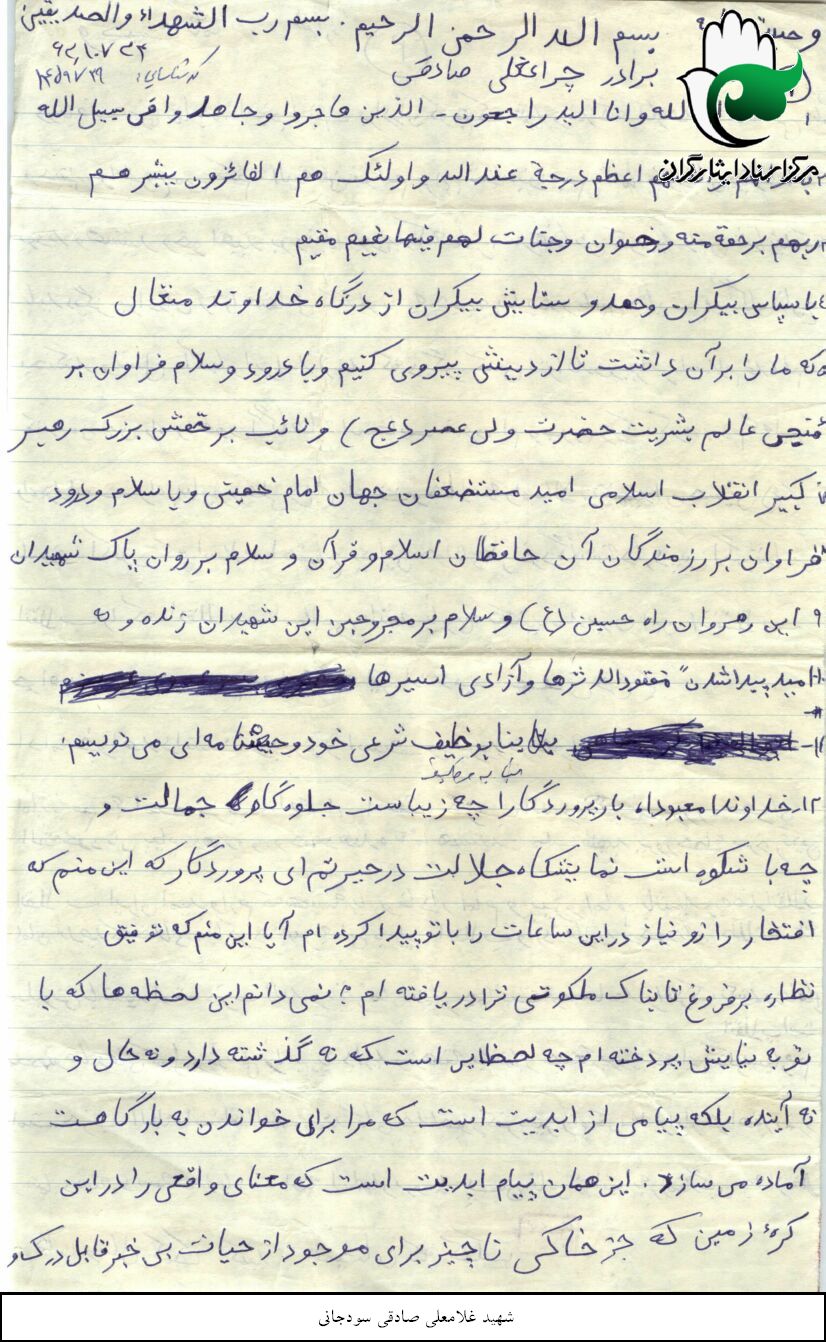 بسم الله الرحمن الرحیم. بسم رب الشهداء والصدیقین
برادر چراغعلی صادقی کد شناسایی:
لله وانا الیه راجعون - الذین هاجروا وجاهدوا فی سبیل الله
مرکز اسناد ایثارگران
اعظم درجة عند الله واولئک هم الفائزون یبشرهم
ربهم برحمة منه ورضوان وجنات لهم فیها نعیم مقیم
باسپاس بیکران وحمد و ستایش بیکران از درگاه خداوند متعال
که ما را برآن داشت تا از دینش پیروی کنیم وبا درود وسلام فراوان بر
منجی عالم بشریت حضرت ولی عصر (عج) ونائب برحقش بزرگ رهبر
کبیر انقلاب اسلامی امید مستضعفان جهان امام خمینی وبا سلام ودرود
فراوان بر رزمندگان آن حافظان اسلام و قرآن و سلام بر روان پاک شهیدان
۹ این رهروان راه حسین (ع) و سلام بر مجروحین این شهیدان زنده و به
۱۰- امید پیداشدن مفقودالاثرها و آزادی اسیرها
۱۱- بنا بوظیفه شرعی خود وصیتنامه‌ای می نویسم.
بنا به وظیفه
۱۲. خداوندا معبودا، بار پروردگارا چه زیباست جلوه گاه جمالت و
چه با شکوه است نمایشگاه جلالت در حیرتم ای پروردگار که این منم که
افتخار راز و نیاز در این ساعات را با تو پیدا کرده ام آیا این منم که توفیق
نظاره بر فروغ تابناک ملکوتی ترا دریافته ام؟ نمی دانم این لحظه ها که با
تو به نیایش پرداخته ام چه لحظایر است که نه گذشته دارد ونه حال و
نه آینده بلکه پیامی از ابدیت است که مرا برای خواندن به بارگاهت
آماده می سازد. این همان پیام ابدیت است که معنای واقعی را در این
کرهٔ زمین که جز خاکی ناچیز برای موجود از حیات بی خبر قابل درک و
شهید غلامعلی صادقی سودجانی